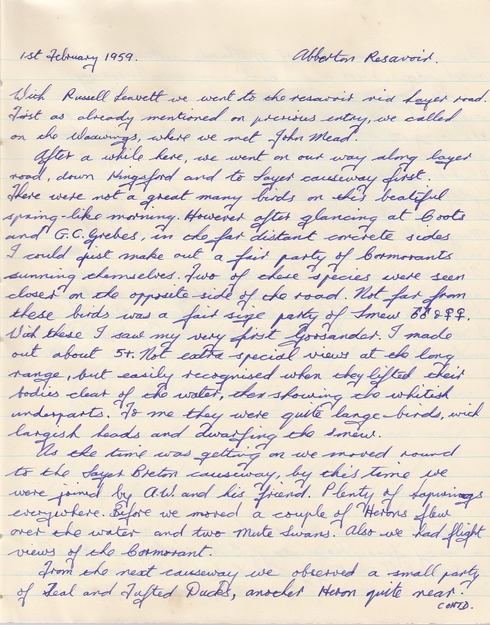 1st February 1959. Abberton Resavoir.
With Russell Leavett we went to the resavoir vid Layer road.
First as already mentioned on previous entry, we called
on the Waxwings, where we met John Mead.
After a while here, we went on our way along layer
road, down Kingsford and to Layer causeway first.
There were not a great many birds on this beatiful
spring-like morning. However after glancing at Coots
and G.C. Grebes, in the far distant concrete sides
I could just make out a fair party of Cormorants
sunning themselves. Two of these species were seen
closer on the opposite side of the road. Not far from
these birds was a fair size party of Smew ♂♂ & ♀♀.
With these I saw my very first Goosander. I made
out about 5+. Not extra special views at the long
range, but easily recognised when they lifted their
bodies clear of the water, then showing the whitish
underparts. To me they were quite large birds, with
largish heads and dwarfing the Smew.
As the time was getting on we moved round
to the Layer Breton causeway, by this time we
were joined by A.W. and his friend. Plenty of Lapwings
everywhere. Before we moved a couple of Herons flew
over the water and two Mute Swans. Also we had flight
views of the Cormorant.
From the next causeway we observed a small party
of Teal and Tufted Ducks, another Heron quite near.
CONTD.